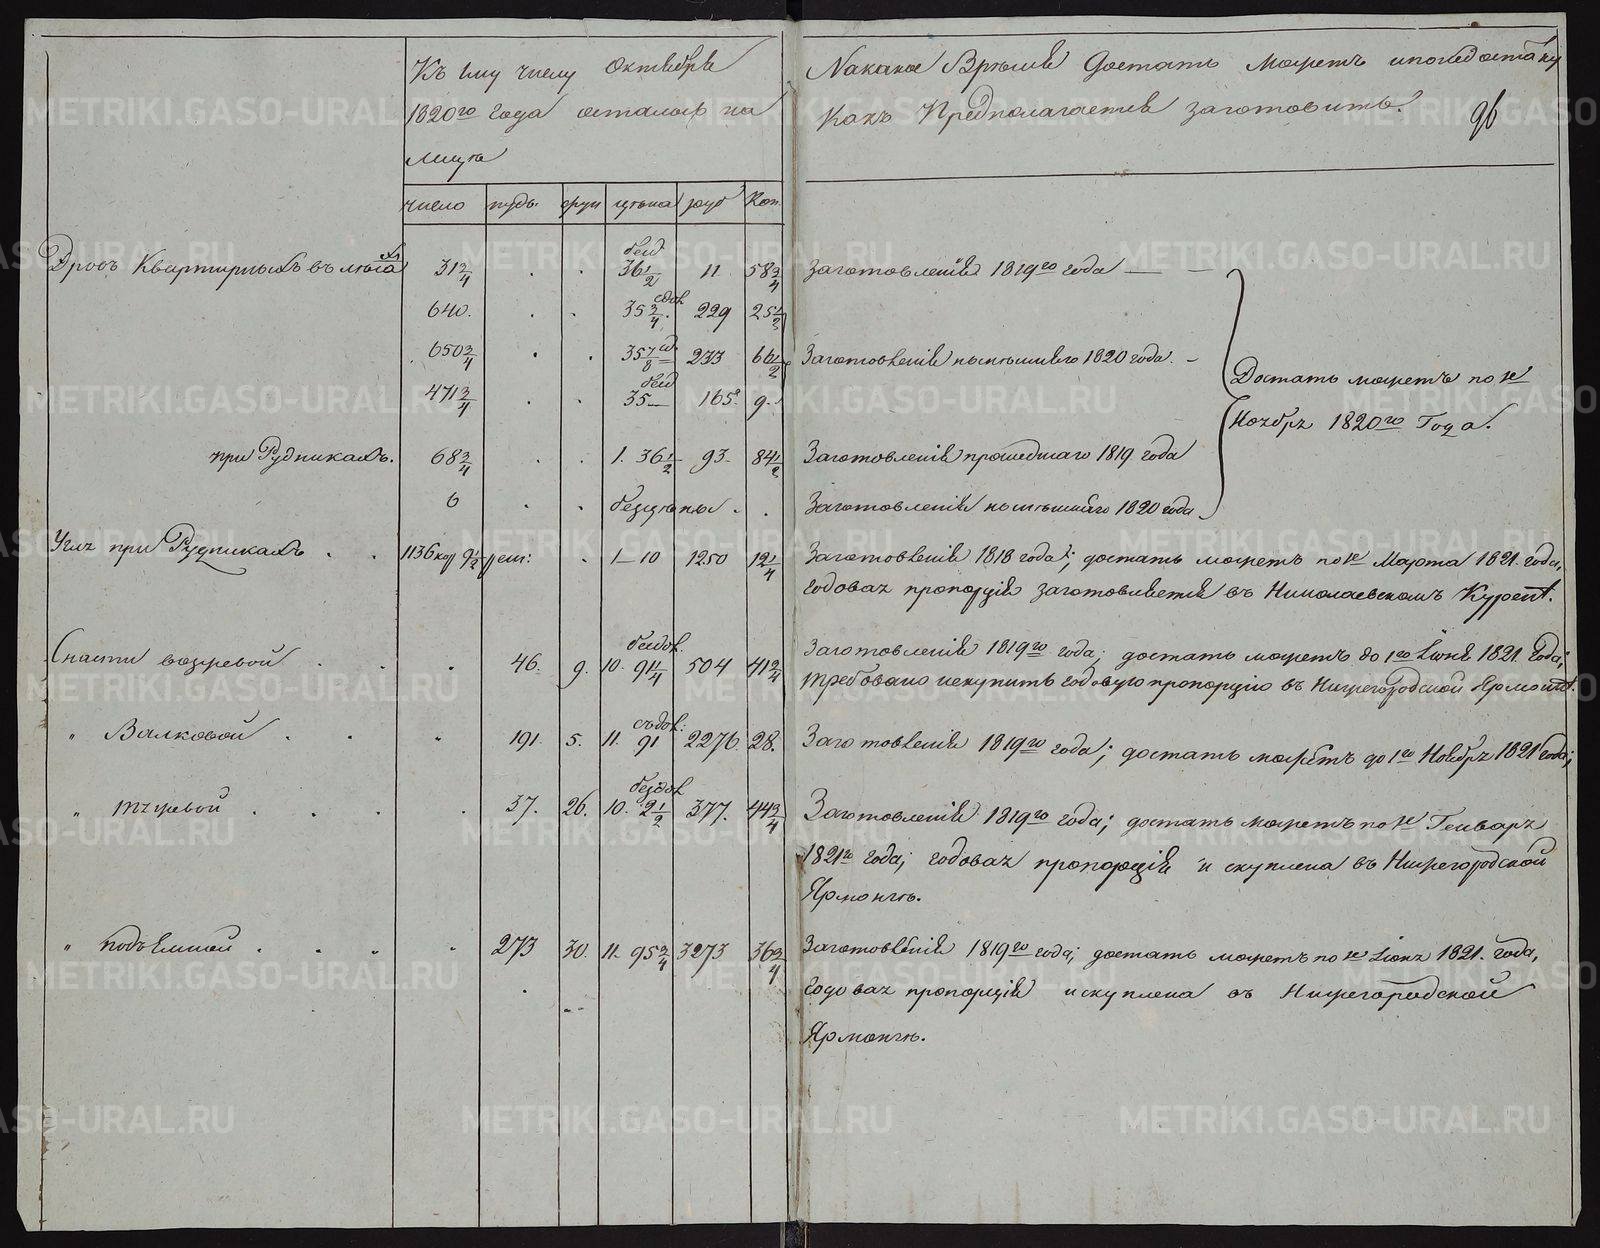 Къ 1му числу Октября
1820го года осталось на
лицо
На какое Время Достать можетъ и по недостатку
какъ Предполагается заготовить.
96
число пудъ фун цена руб Коп
Дровъ Квартирныхъ въ 31 3/4 . . 36 1/2 11 58 3/4 Заготовленiя 1819го года
640. . . 35 3/4 229 25 1/2
650 3/4 . . 35 7/8 233 66 1/2 Заготовленiя нынѣшняго 1820 года
471 3/4 . . 35 165 9
Достать можетъ по 1е
Ноябрь 1820го Года.
при Рудникахъ. 68 3/4 . . 1. 36 1/2 93 84 1/2 Заготовленiя прошедшаго 1819 года
6 . . безцены . . Заготовленiя нынѣшняго 1820 года
Угля при Рудникахъ . . 1136 кор 9 1/2 реш: . 1-10 1250 12 1/4 Заготовленiя 1818 года; достать можетъ по 1е Марта 1821. года,
годовая пропорцiя заготовляется въ Николаевскомъ Курене.
Снасти возжевой . . . 46. 9. 10. 91 1/4 504 41 2/4 Заготовленiя 1819го года; достать можетъ до 1го Iюня 1821 года;
требовано искупить годовую пропорцiю въ Нижегородской Ярмонке.
" Валковой . . . 191. 5. 11. 91 2276. 28. Заготовленiя 1819го года; достать можетъ до 1го Ноября 1821 года;
" тяжевой . . . . 37. 26. 10. 2 1/2 377. 44 3/4 Заготовленiя 1819го года; достать можетъ по 1е Генваря
1821го года; годовая пропорцiя искуплена въ Нижегородской
Ярмонкѣ.
" подъемной . . . . 273 30. 11. 95 3/4 3273 36 3/4 Заготовленiя 1819го года; достать можетъ по 1е Iюня 1821. года,
годовая пропорцiя искуплена въ Нижегородской
Ярмонкѣ.
METRIKI.GASO-URAL.RU